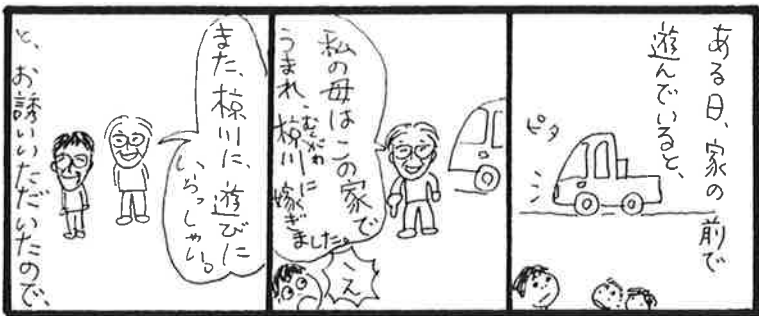 ある日、家の前で
遊んでいると、
ピタ
私の母はこの家で
うまれ、椋川に
むくがわ
嫁ぎました。
え
また、椋川に、遊びに
いらっしゃい。
と、お誘いいただいたので、